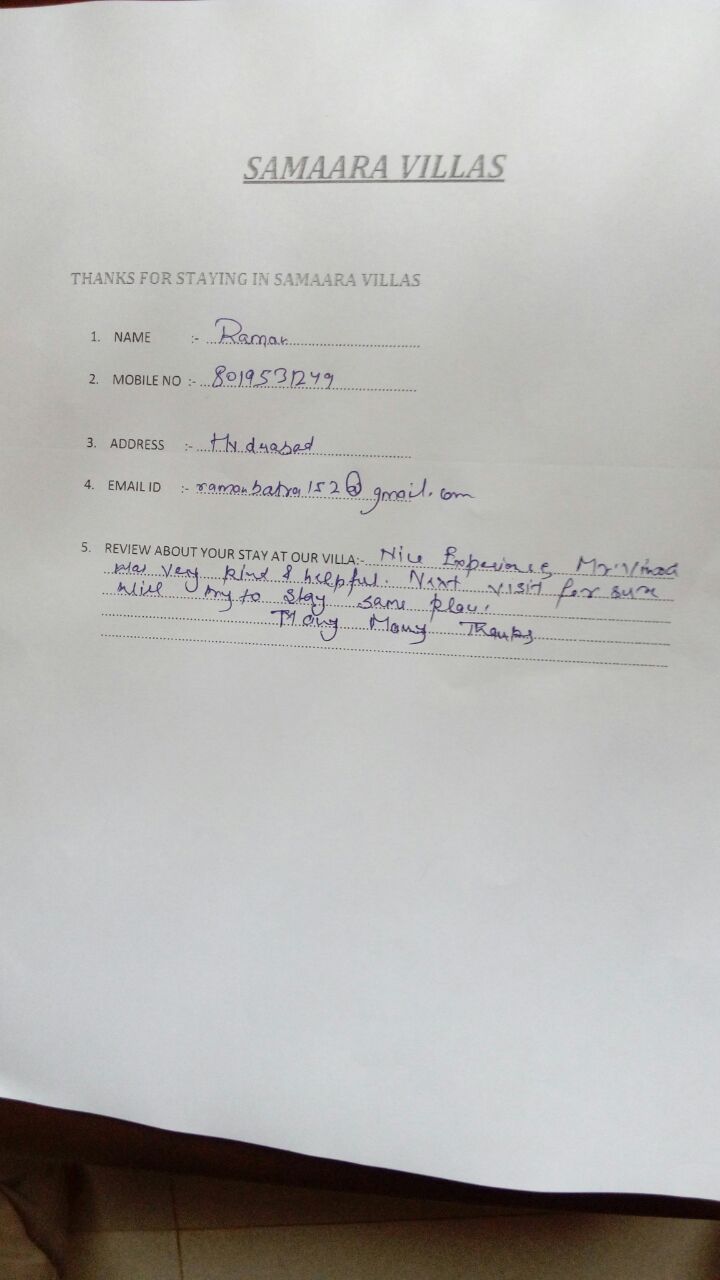 SAMAARA VILLAS
THANKS FOR STAYING IN SAMAARA VILLAS
1. NAME :- Raman
2. MOBILE NO :- 8019531249
3. ADDRESS :- Hyderabad
4. EMAIL ID :- ramanbatra152@gmail.com
5. REVIEW ABOUT YOUR STAY AT OUR VILLA:- Nice Experience, Mr. Vinod
was very kind & helpful. Next visit for sure
will try to stay same place.
Many Many Thanks